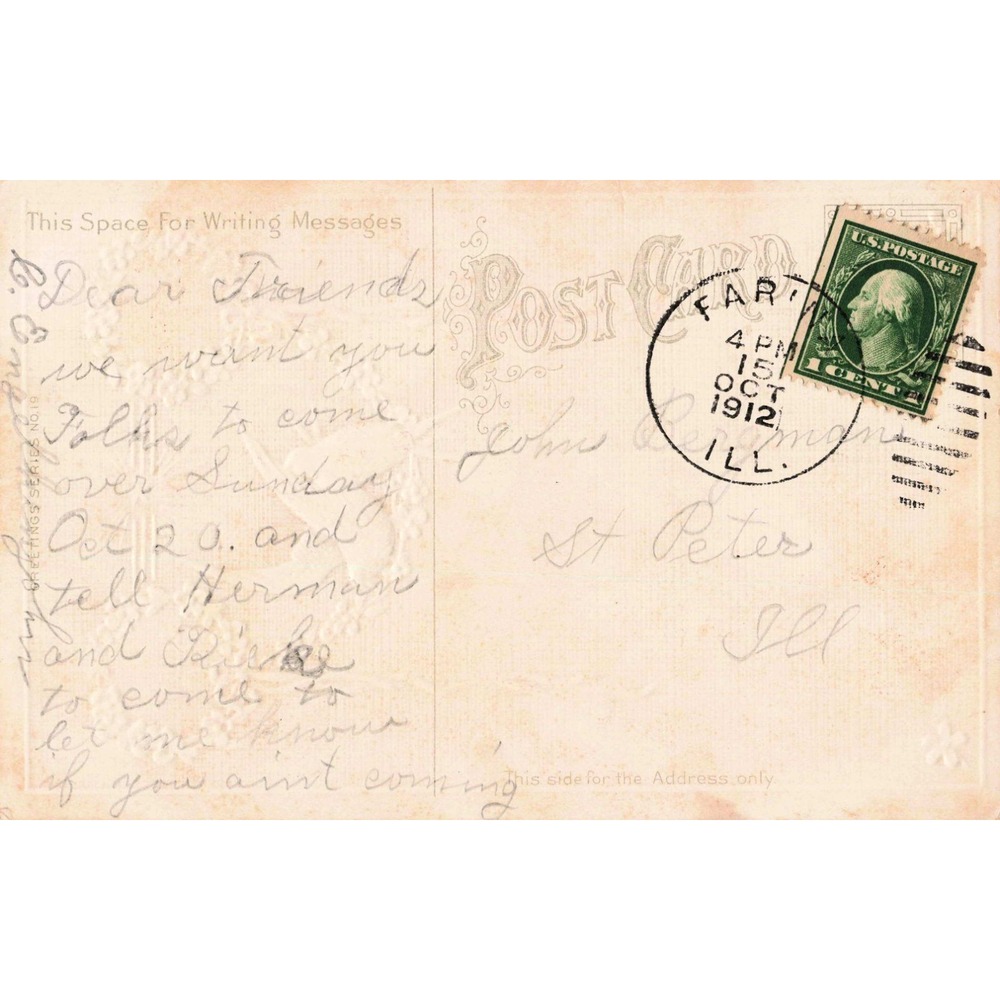 This Space For Writing Messages
Dear Friends
we want you
Folks to come
over Sunday
Oct 20. and
tell Herman
and Ricke
to come to
let me know
if you aint coming
GREETINGS SERIES NO.19
POST CARD
John Bergman
St Peter
Ill
This side for the Address only
FARINA
4 PM
15
OCT
1912
ILL.
U.S. POSTAGE
1 CENT 1